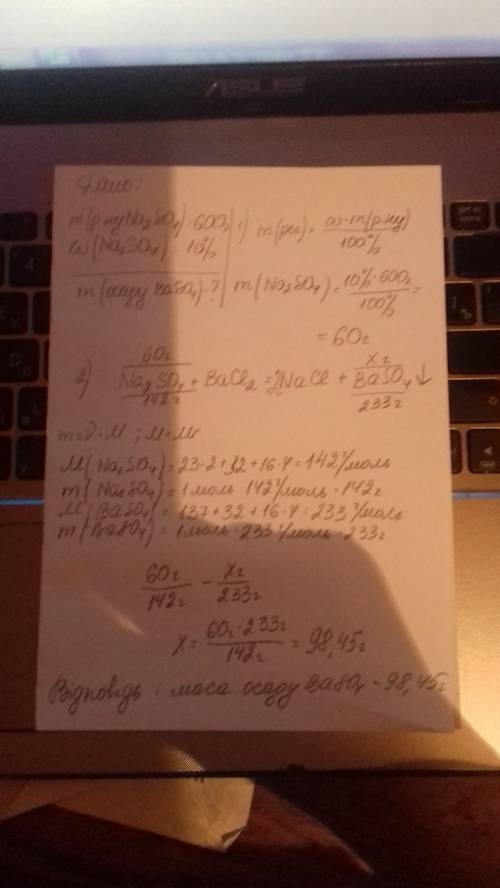 Дано:
m(р-ну Na₂SO₄) = 600г
ω(Na₂SO₄) = 10%
m(осаду BaSO₄) - ?
1) m(р.р) = ω·m(р-ну) / 100%
m(Na₂SO₄) = 10%·600г / 100% =
= 60г
60г xг
2) Na₂SO₄ + BaCl₂ = 2NaCl + BaSO₄↓
142г 233г
m=ν·M ; M=Mr
M(Na₂SO₄) = 23·2+32+16·4=142г/моль
m(Na₂SO₄) = 1моль·142г/моль=142г
M(BaSO₄) = 137+32+16·4=233г/моль
m(BaSO₄) = 1моль·233г/моль=233г
60г / 142г = xг / 233г
x = 60г·233г / 142г = 98,45г
Відповідь: маса осаду BaSO₄ - 98,45г